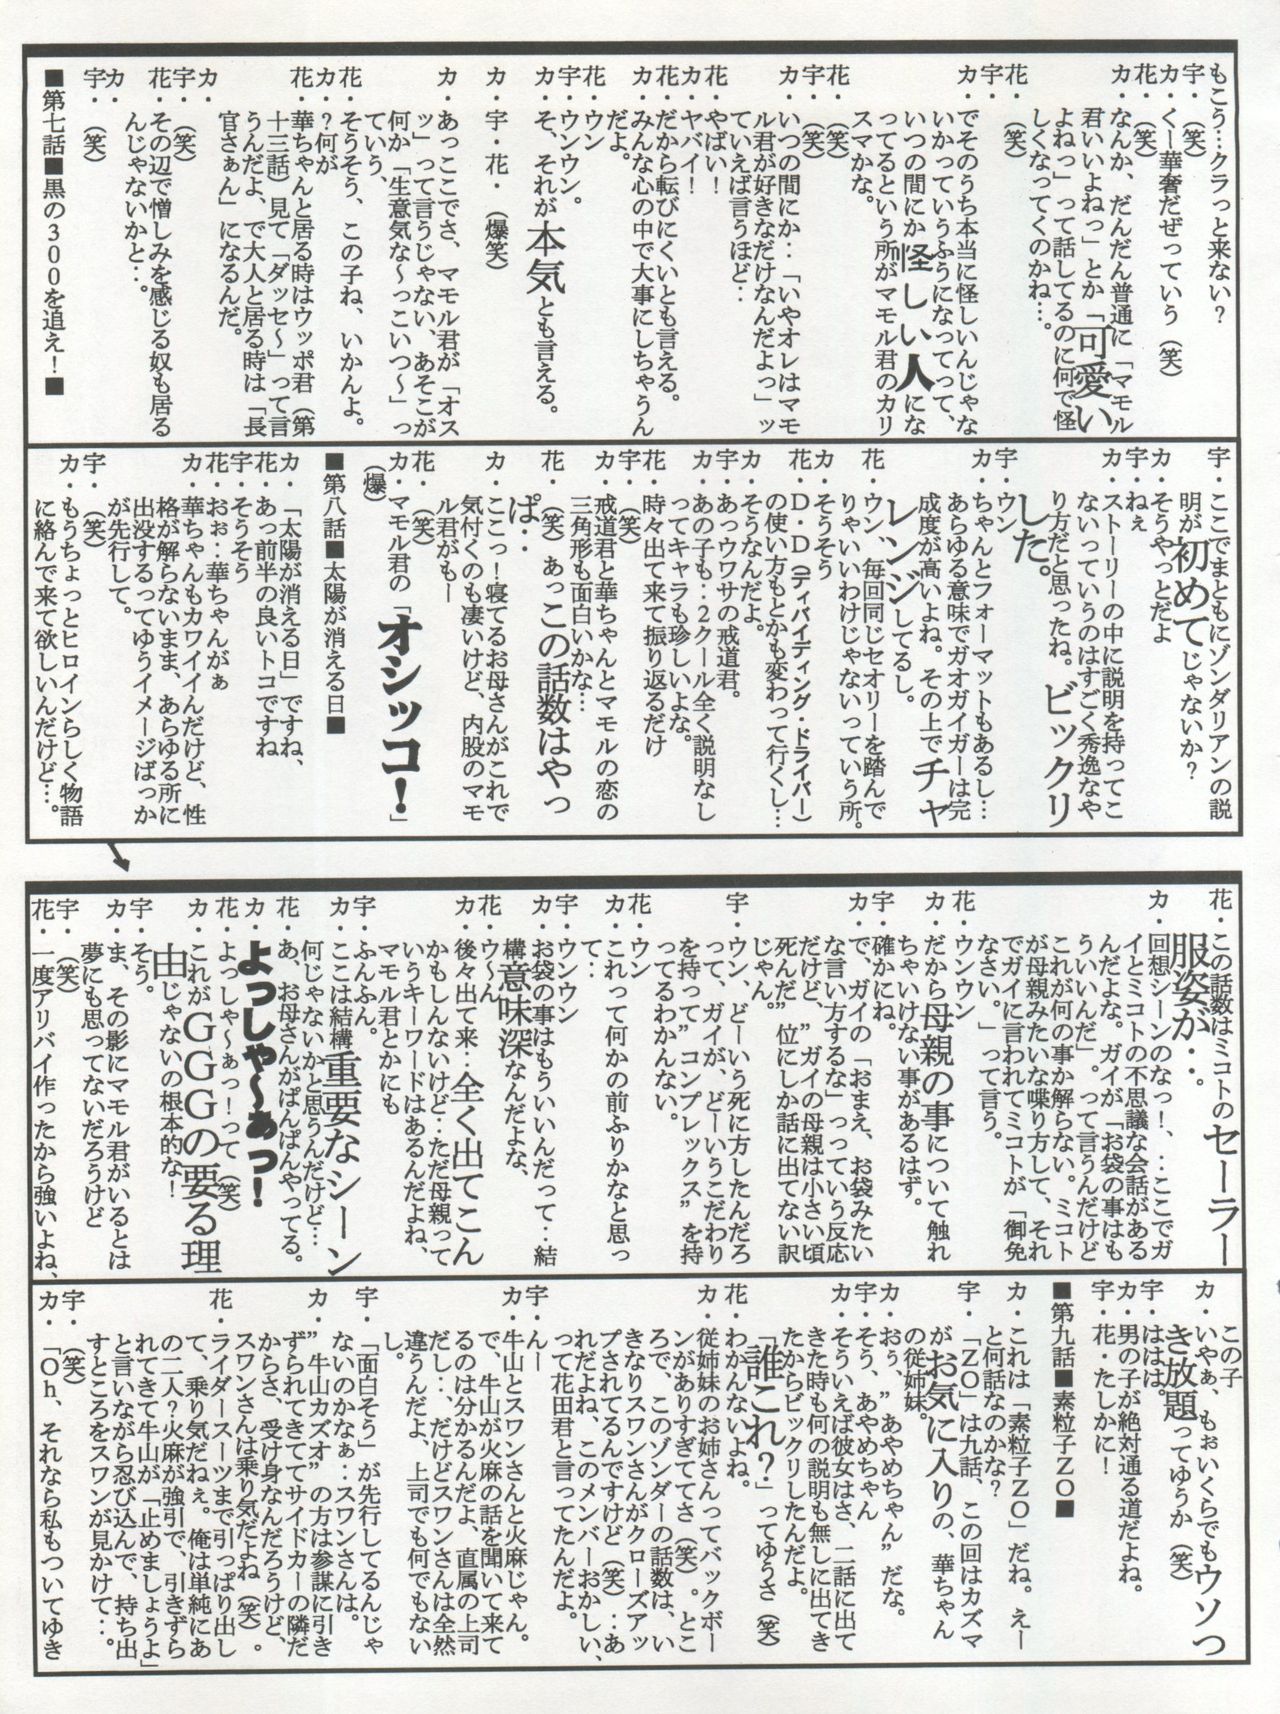 もこう…クラっと来ない？
宇・（笑）
カ・くー華奢だぜっていう（笑）
花・（笑）
カ・なんか、だんだん普通に「マモル
君いいよねっ」とか「可愛い
よねっ」って話してるのに何で怪
しくなってくのかね…。
花・（笑）
宇・
カ・でそのうち本当に怪しいんじゃな
いかっていうふうになってって、
いつの間にか怪しい人にな
ってるという所がマモル君のカリ
スマかな。
花・（笑）
宇・（笑）
カ・いつの間にか‥「いやオレはマモ
ル君が好きなだけなんだよっ」ッ
ていえば言うほど‥
花・やばい！
カ・ヤバイ！
花・だから転びにくいとも言える。
カ・みんな心の中で大事にしちゃうん
だよ。
花・ウン
宇・ウンウン。
カ・そ、それが本気とも言える。
カ・宇・花・（爆笑）
カ・あっここでさ、マモル君が「オス
ッ」って言うじゃない、あそこが
何か「生意気な～っこいつ～」っ
ていう、
花・そうそう、この子ね、いかんよ。
カ・？何が
花・華ちゃんと居る時はウッポ君（第
十三話）見て「ダッセ～」って言
うんだよ、で大人と居る時は「長
官さぁん」になるんだ。
カ・
宇・（笑）
花・その辺で憎しみを感じる奴も居る
んじゃないかと‥。
カ・
宇・（笑）
■第七話■黒の３００を追え！■
宇・ここでまともにゾンダリアンの説
明が初めてじゃないか？
カ・そうやっとだよ
宇・ねぇ
カ・ストーリーの中に説明を持ってこ
ないっていうのはすごく秀逸なや
り方だと思ったね。ビックリ
した。
宇・ウン
カ・ちゃんとフォーマットもあるし…
あらゆる意味でガオガイガーは完
成度が高いよね。その上でチャ
レンジしてるし。
花・ウン、毎回同じセオリーを踏んで
りゃいいわけじゃないっていう所。
カ・そうそう
花・Ｄ・Ｄ（ディバイディング・ドライバー）
の使い方もとかも変わって行くし…
カ・そうなんだよ。
宇・あっウワサの戒道君。
カ・あの子も‥２クール全く説明なし
ってキャラも珍しいよな。
花・時々出て来て振り返るだけ
宇・（笑）
カ・戒道君と華ちゃんとマモルの恋の
三角形も面白いかな…
花・（笑）あっこの話数はやっ
ぱ‥
カ・ここっ！寝てるお母さんがこれで
気付くのも凄いけど、内股のマモ
ル君がもー
花・（笑）
カ・マモル君の「オシッコ！」
（爆）
■第八話■太陽が消える日■
カ・「太陽が消える日」ですね、
花・あっ前半の良いトコですね
宇・そうそう
花・おぉ‥華ちゃんがぁ
カ・華ちゃんもカワイイんだけど、性
格が解らないまま、あらゆる所に
出没するってゆうイメージばっか
が先行して。
宇・（笑）
カ・もうちょっとヒロインらしく物語
に絡んで来て欲しいんだけど…。
花・この話数はミコトのセーラー
服姿が‥。
カ・回想シーンのなっ！、‥ここでガ
イとミコトの不思議な会話がある
んだよな。ガイが「お袋の事はも
ういいんだ」って言うんだけど
これが何の事か解らない。ミコト
が母親みたいな喋り方して、それ
でガイに言われてミコトが「御免
なさい。」って言う。
花・ウンウン
カ・だから母親の事について触れ
ちゃいけない事があるはず。
宇・確かにね。
カ・で、ガイの「おまえ、お袋みたい
な言い方するな」っっていう反応
だけど、”ガイの母親は小さい頃
死んだ”位にしか話に出てない訳
じゃん。
宇・ウン、どーいう死に方したんだろ
って、ガイが、どーいうこだわり
を持って”コンプレックス”を持
ってるわかんない。
花・ウン
カ・これって何かの前ふりかなと思っ
て‥
宇・ウンウン
カ・お袋の事はもういいんだって‥結
構意味深なんだよな、
花・ウ～ん
カ・後々出て来‥全く出てこん
かもしんないけど‥ただ母親って
いうキーワードはあるんだよね、
マモル君とかにも
宇・ふんふん。
カ・ここは結構重要なシーン
何じゃないかと思うんだけど…
花・あ、お母さんがぱんぱんやってる。
カ・よっしゃ～あっ！
花・よっしゃ～ぁっ！って（笑）
カ・これがＧＧＧの要る理
由じゃないの根本的な！
宇・そう。
カ・ま、その影にマモル君がいるとは
夢にも思ってないだろうけど
宇・（笑）
花・一度アリバイ作ったから強いよね、
この子
カ・いやぁ、もぉいくらでもウソつ
き放題ってゆうか（笑）
宇・ははは。
カ・男の子が絶対通る道だよね。
宇・花・たしかに！
■第九話■素粒子ＺＯ■
カ・これは「素粒子ＺＯ」だね。えー
と何話なのかな？
宇・「ＺＯ」は九話、この回はカズマ
がお気に入りの、華ちゃん
の従姉妹。
カ・おぅ、”あやめちゃん”だな。
宇・そう、あやめちゃん
カ・そういえば彼女はさ、二話に出て
きた時も何の説明も無しに出てき
たからビックリしたんだよ。
「誰これ？」ってゆうさ（笑）
花・わかんないよね。
カ・従姉妹のお姉さんってバックボー
ンがありすぎててさ（笑）。とこ
ろで、このゾンダーの話数は、い
きなりスワンさんがクローズアッ
プされてるんですけど（笑）‥あ
れだよね、このメンバーおかしい、
って花田君と言ってたんだよ。
宇・んー
カ・牛山とスワンさんと火麻じゃん。
で、牛山が火麻の話を聞いて来て
るのは分かるんだよ、直属の上司
だし‥、だけどスワンさんは全然
違うんだよ、上司でも何でもない
し。
宇・「面白そう」が先行してるんじゃ
ないのかなぁ‥スワンさんは。
カ・”牛山カズオ”の方は参謀に引き
ずられてきててサイドカーの隣だ
からさ、受け身なんだろうけど、
スワンさんは乗り気だよね（笑）。
花・ライダースーツまで引っぱり出し
て、乗り気だねぇ。俺は単純にあ
の二人？火麻が強引で、引きずら
れてきて牛山が「止めましょうよ」
と言いながら忍び込んで、持ち出
すところをスワンが見かけて‥。
宇・（笑）
カ・「Ｏｈ、それなら私もついてゆき